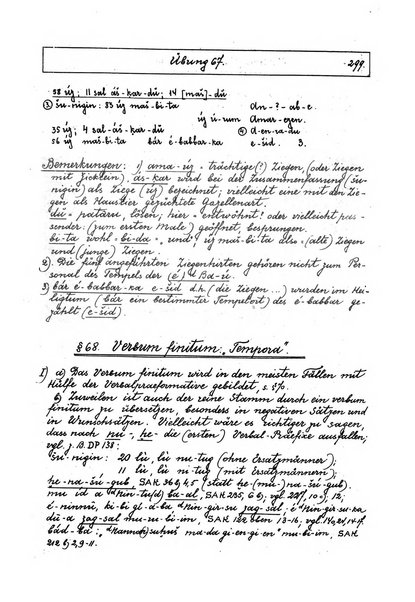 Übung 67. 299.
58 úz; 11 sal áš-kar-dŭ; 14 [maš]-dŭ
③ šu-nigin: 83 úz maš-bi-ta dn-?-ab-e.
úz ú-rum Amar-ezen.
35 úz; 4 sal-áš-kar-dŭ ④ d-en-ra-du
56 úz maš-bi-ta bár é-babbar-ka e-šid. 3.
Bemerkungen: 1) ama-úz = trächtige(?) Ziegen, (oder Ziegen
mit Zicklein). áš-kar wird bei der Zusammenfassung (šu-
nigin) als Ziege (úz) bezeichnet; vielleicht eine mit den Zie-
gen als Haustier gezüchtete Gazellenart.
dŭ = paṭāru, lösen; hier = entwöhnt? oder vielleicht pas-
sender: (zum ersten Male) geöffnet, besprungen.
bi-ta wohl = bi-da = „und“ úz maš-bi-ta also = (alte) Ziegen
und (junge) Ziegen.
2). Die fünf angeführten Ziegenhirten gehören nicht zum Per-
sonal des Tempels der (é) ᵈBa-ú.
3) bár é-babbar-ka e-šid d.h. (die Ziegen ...) wurden im Hei-
ligtum (bár ein bestimmter Tempelort) des é-babbar ge-
zählt (e-šid).
§ 68. Verbum finitum: „Tempora“.
I) a) Das Verbum finitum wird in den meisten Fällen mit
Hülfe der Verbalpraeformative gebildet, s. §70.
b) Zuweilen ist auch der reine Stamm durch ein verbum
finitum zu übersetzen, besonders in negativen Sätzen und
in Wunschsätzen. Vielleicht wäre es richtiger zu sagen,
dass nach nu-, he- die (ersten) Verbal-Präfixe ausfallen;
vgl. z.B. DP 138:
šu-nigin: 20 lù, lù nu-tug (ohne Ersatzmänner),
11 lù, lù ni-tug (mit Ersatzmännern);
he-na-šú-gub, SAK 36 b, 4,5 (statt he-(mu)-na-šú-gub).
mu id a ᵈNin-tu(d) ba-al, SAK 235, 6 b),
é-ninnu, ki-bi gí-a-ba ᵈNin-gir-su zag-sal, é ᵈNin-gir-su-ka
dŭ-a zag-sal mu-ru-bi-im, SAK
bád-ba:
212 b, 2, 9-11.